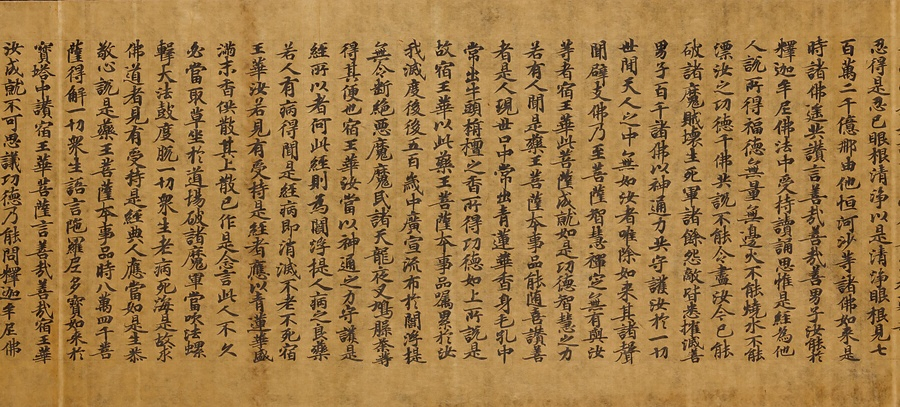 忍得是忍已眼根清淨以是清淨眼根見七
百萬二千億那由他恒河沙等諸佛如來是
時諸佛遥共讚言善哉善哉善男子汝能於
釋迦牟尼佛法中受持讀誦思惟是經為他
人說所得福德無量無邊火不能燒水不能
漂汝之功德千佛共說不能令盡汝今已能
破諸魔賊壞生死軍諸餘怨敵皆悉摧滅善
男子百千諸佛以神通力共守護汝於一切
世閒天人之中無如汝者唯除如來其諸聲
聞辟支佛乃至菩薩智慧禪定無有與汝
等者宿王華此菩薩成就如是功德智慧之力
若有人聞是藥王菩薩本事品能随喜讚善
者是人現世口中常出青蓮華香身毛孔中
常出牛頭栴檀之香所得功德如上所說是
故宿王華以此藥王菩薩本事品囑累於汝
我滅度後後五百歲中廣宣流布於閻浮提
無令斷絕惡魔魔民諸天龍夜叉鳩槃荼等
得其便也宿王華汝當以神通之力守護是
經所以者何此經則為閻浮提人病之良藥
若人有病得聞是經病即消滅不老不死宿
王華汝若見有受持是經者應以青蓮華盛
滿末香供散其上散已作是念言此人不久
必當取草坐於道場破諸魔軍當吹法螺
擊大法鼓度脫一切衆生老病死海是故求
佛道者見有受持是經典人應當如是生恭
敬心說是藥王菩薩本事品時八萬四千菩
薩得解一切衆生語言陁羅尼多寶如來於
寶塔中讚宿王華菩薩言善哉善哉宿王華
汝成就不可思議功德乃能問釋迦牟尼佛